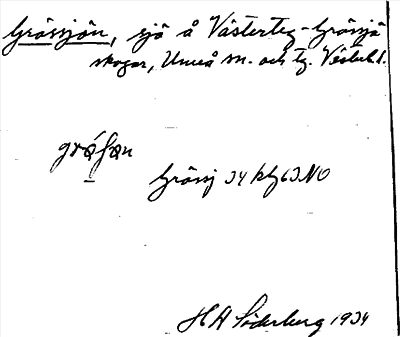 Grössjön, sjö å Västerteg-Grössjö
skogar, Umeå sn. och tg. Västerb.l.
Grössj J4 kbl 63 NO
H A Söderberg 1934